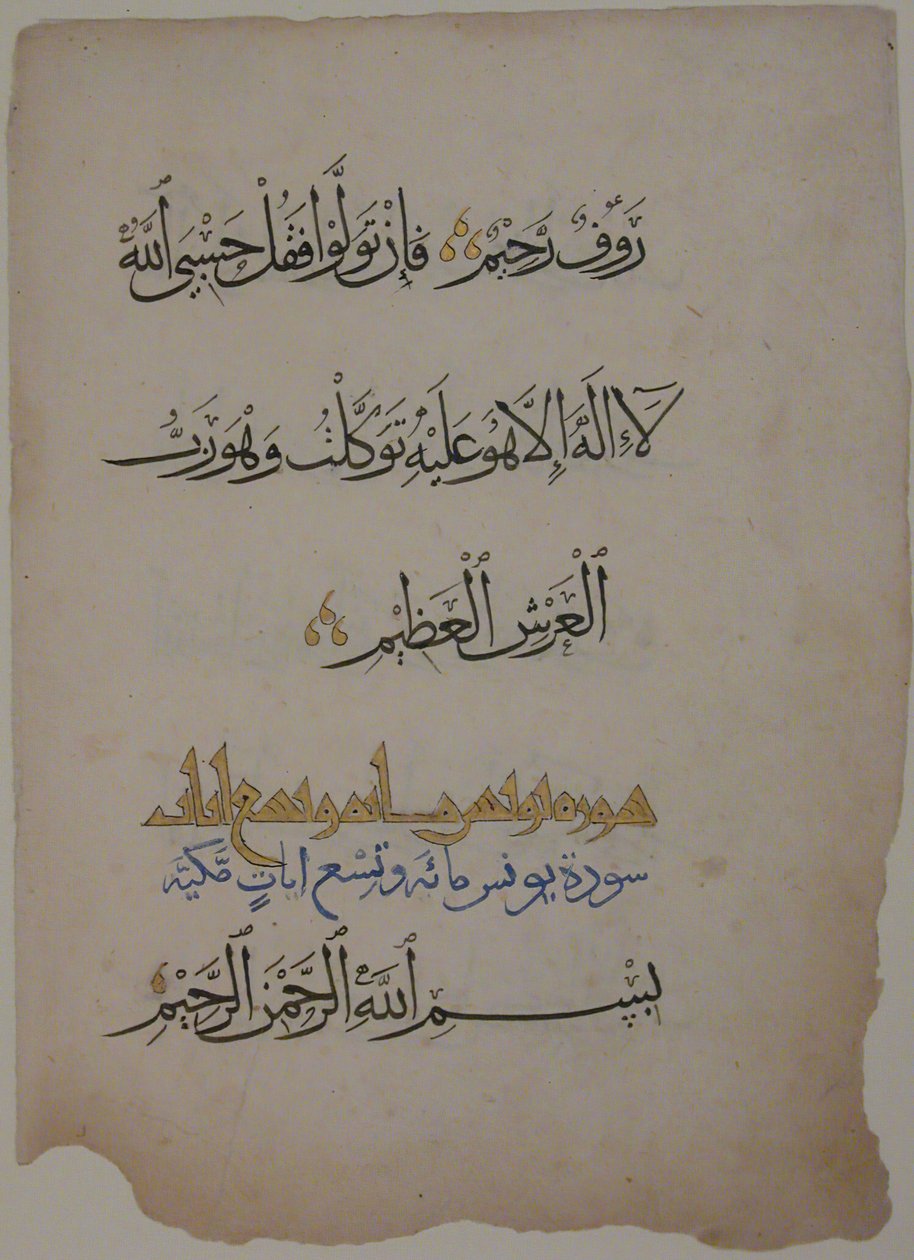 رَوُفٌ رَّحِيمٌ فَإِنْ تَوَلَّوْا فَقُلْ حَسْبِيَ ٱللَّهُ
لَآ إِلَهَ إِلَّا هُوَ عَلَيْهِ تَوَكَّلْتُ وَهْوَ رَبُّ
ٱلْعَرْشِ ٱلْعَظِيْمِ
سورة يونس مائة وتسع ايات
سورة يونس مائَه وتِسْع اياتٍ مَّكيَّه
بِسْمِ ٱللَّهِ ٱلرَّحْمَنِ ٱلرَّحِيْمِ